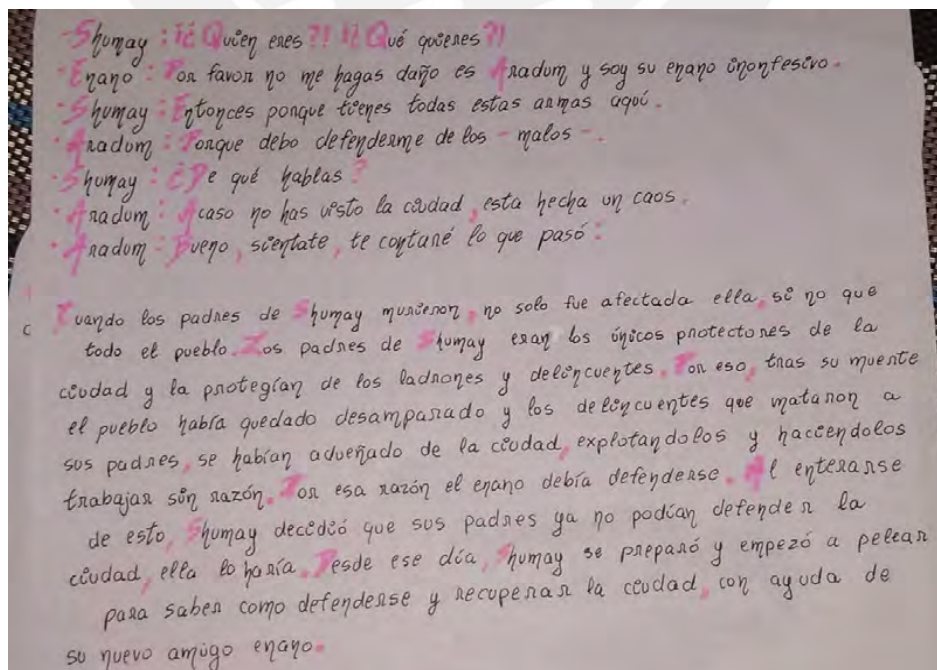 -Shumay: ¡¿Quien eres?! ¡¿Qué quieres?!
-Enano: Por favor no me hagas daño es Aradum y soy su enano inonfesivo.
-Shumay: Entonces porque tienes todas estas armas aquí.
-Aradum: Porque debo defenderme de los - malos -.
-Shumay: ¿De qué hablas?
-Aradum: Acaso no has visto la ciudad, esta hecha un caos.
-Aradum: Bueno, sientate, te contaré lo que pasó:
Cuando los padres de Shumay murieron, no solo fue afectada ella, si no que
todo el pueblo. Los padres de Shumay eran los únicos protectores de la
ciudad y la protegían de los ladrones y delincuentes. Por eso, tras su muerte
el pueblo había quedado desamparado y los delincuentes que mataron a
sus padres, se habían adueñado de la ciudad, explotandolos y haciendolos
trabajar sin razón. Por esa razón el enano debía defenderse. Al enterarse
de esto, Shumay decidió que sus padres ya no podían defender la
ciudad, ella lo haría. Desde ese día, Shumay se preparó y empezó a pelear
para saber como defenderse y recuperar la ciudad, con ayuda de
su nuevo amigo enano.